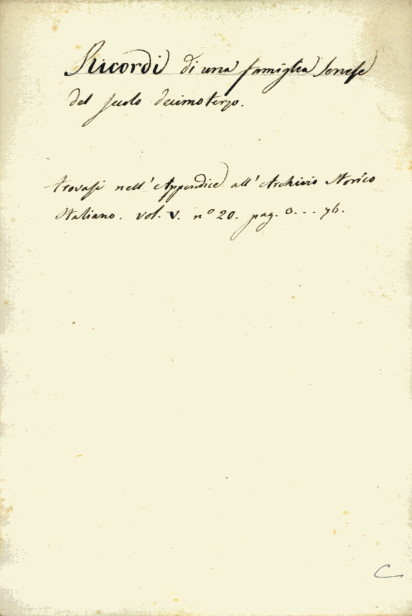 Ricordi di una famiglia senese
del secolo decimoterzo.
trovasi nell'Appendice all'Archivio Storico
Italiano. vol. V. nº 20. pag. 3... 76.
C